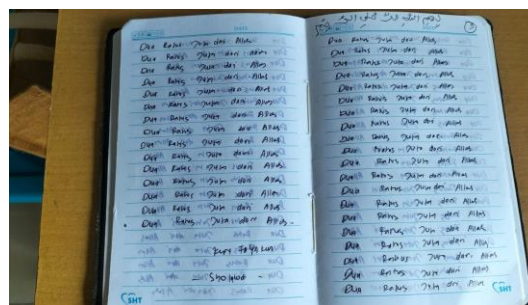 Dua Ratus Juta dari Allas
Dua Ratus Juta dari Allas
Dua Ratus Juta dari Allas
Dua Ratus Juta dari Allas
Dua Ratus Juta dari Allas
Dua Ratus Juta dari Allas
Dua Ratus Juta dari Allas
Dua Ratus Juta dari Allas
Dua Ratus Juta dari Allas
Dua Ratus Juta dari Allas
Dua Ratus Juta dari Allas
Dua Ratus Juta dari Allas
Dua Ratus Juta dari Allas
Dua Ratus Juta dari Allas
Dua Ratus Juta dari Allas
- Sholawat -
SHT
Dua Ratus Juta dari Allas
Dua Ratus Juta dari Allas
Dua Ratus Juta dari Allas
Dua Ratus Juta dari Allas
Dua Ratus Juta dari Allas
Dua Ratus Juta dari Allas
Dua Ratus Juta dari Allas
Dua Ratus Juta dari Allas
Dua Ratus Juta dari Allas
Dua Ratus Juta dari Allas
Dua Ratus Juta dari Allas
Dua Ratus Juta dari Allas
Dua Ratus Juta dari Allas
Dua Ratus Juta dari Allas
Dua Ratus Juta dari Allas
Dua Ratus Juta dari Allas
Dua Ratus Juta dari Allas
Dua Ratus Juta dari Allas
Dua Ratus Juta dari Allas
SHT